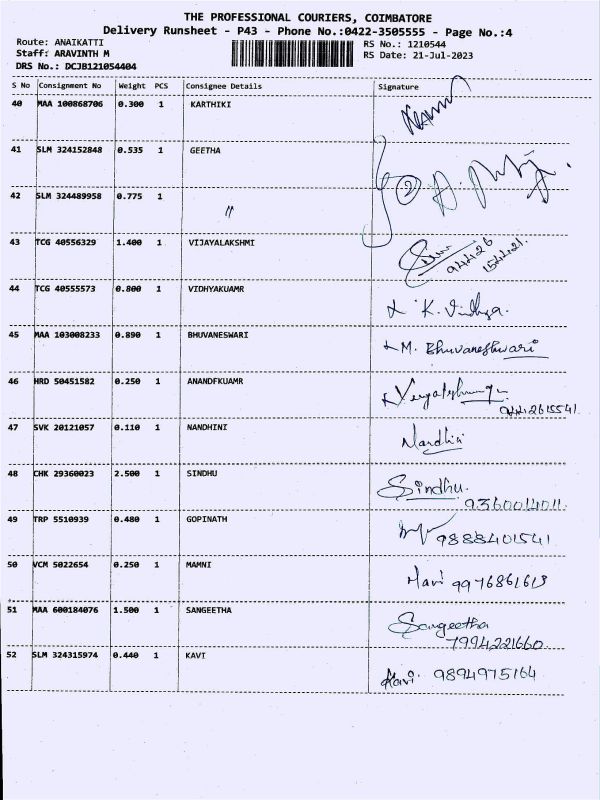 THE PROFESSIONAL COURIERS, COIMBATORE
Delivery Runsheet - P43 - Phone No.:0422-3505555 - Page No.:4
Route: ANAIKATTI RS No.: 1210544
Staff: ARAVINTH M RS Date: 21-Jul-2023
DRS No.: DCJB121054404
S No Consignment No Weight PCS Consignee Details Signature
40 MAA 100868706 0.300 1 KARTHIKI
41 SLM 324152848 0.535 1 GEETHA
2
42 SLM 324489958 0.775 1 〃
43 TCG 40556329 1.400 1 VIJAYALAKSHMI
94426
154421.
44 TCG 40555573 0.800 1 VIDHYAKUAMR K. Vidhya.
45 MAA 103008233 0.890 1 BHUVANESWARI M. Bhuvaneshwari
46 HRD 50451582 0.250 1 ANANDFKUAMR
9442615541.
47 SVK 20121057 0.110 1 NANDHINI Nandhini
48 CHK 29360023 2.500 1 SINDHU Sindhu.
9360014011.
49 TRP 5510939 0.480 1 GOPINATH 9888401541
50 VCM 5022654 0.250 1 MAMNI 9976861613
51 MAA 600184076 1.500 1 SANGEETHA Sangeetha
7994221660
52 SLM 324315974 0.440 1 KAVI Kavi. 9894975164